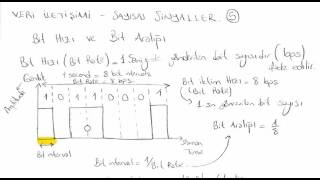 VERİ İLETİŞİMİ - SAYISAL SİNYALLER 5
Bit Hızı ve Bit Aralığı
Bit Hızı (Bit Rate) = 1 Saniyede gönderilen bit sayısıdır (bps)
ifade edilir.
Genlik
1 second = 8 bit intervals
Bit rate = 8 bps
Bit iletim Hızı = 8 bps
(Bit Rate)
1 sn gönderilen bit sayısı
Amplitude
1 0 1 1 0 0 0 1
Bit Aralığı = 1/8
Zaman
Time
Bit interval
Bit interval = 1/Bit Rate